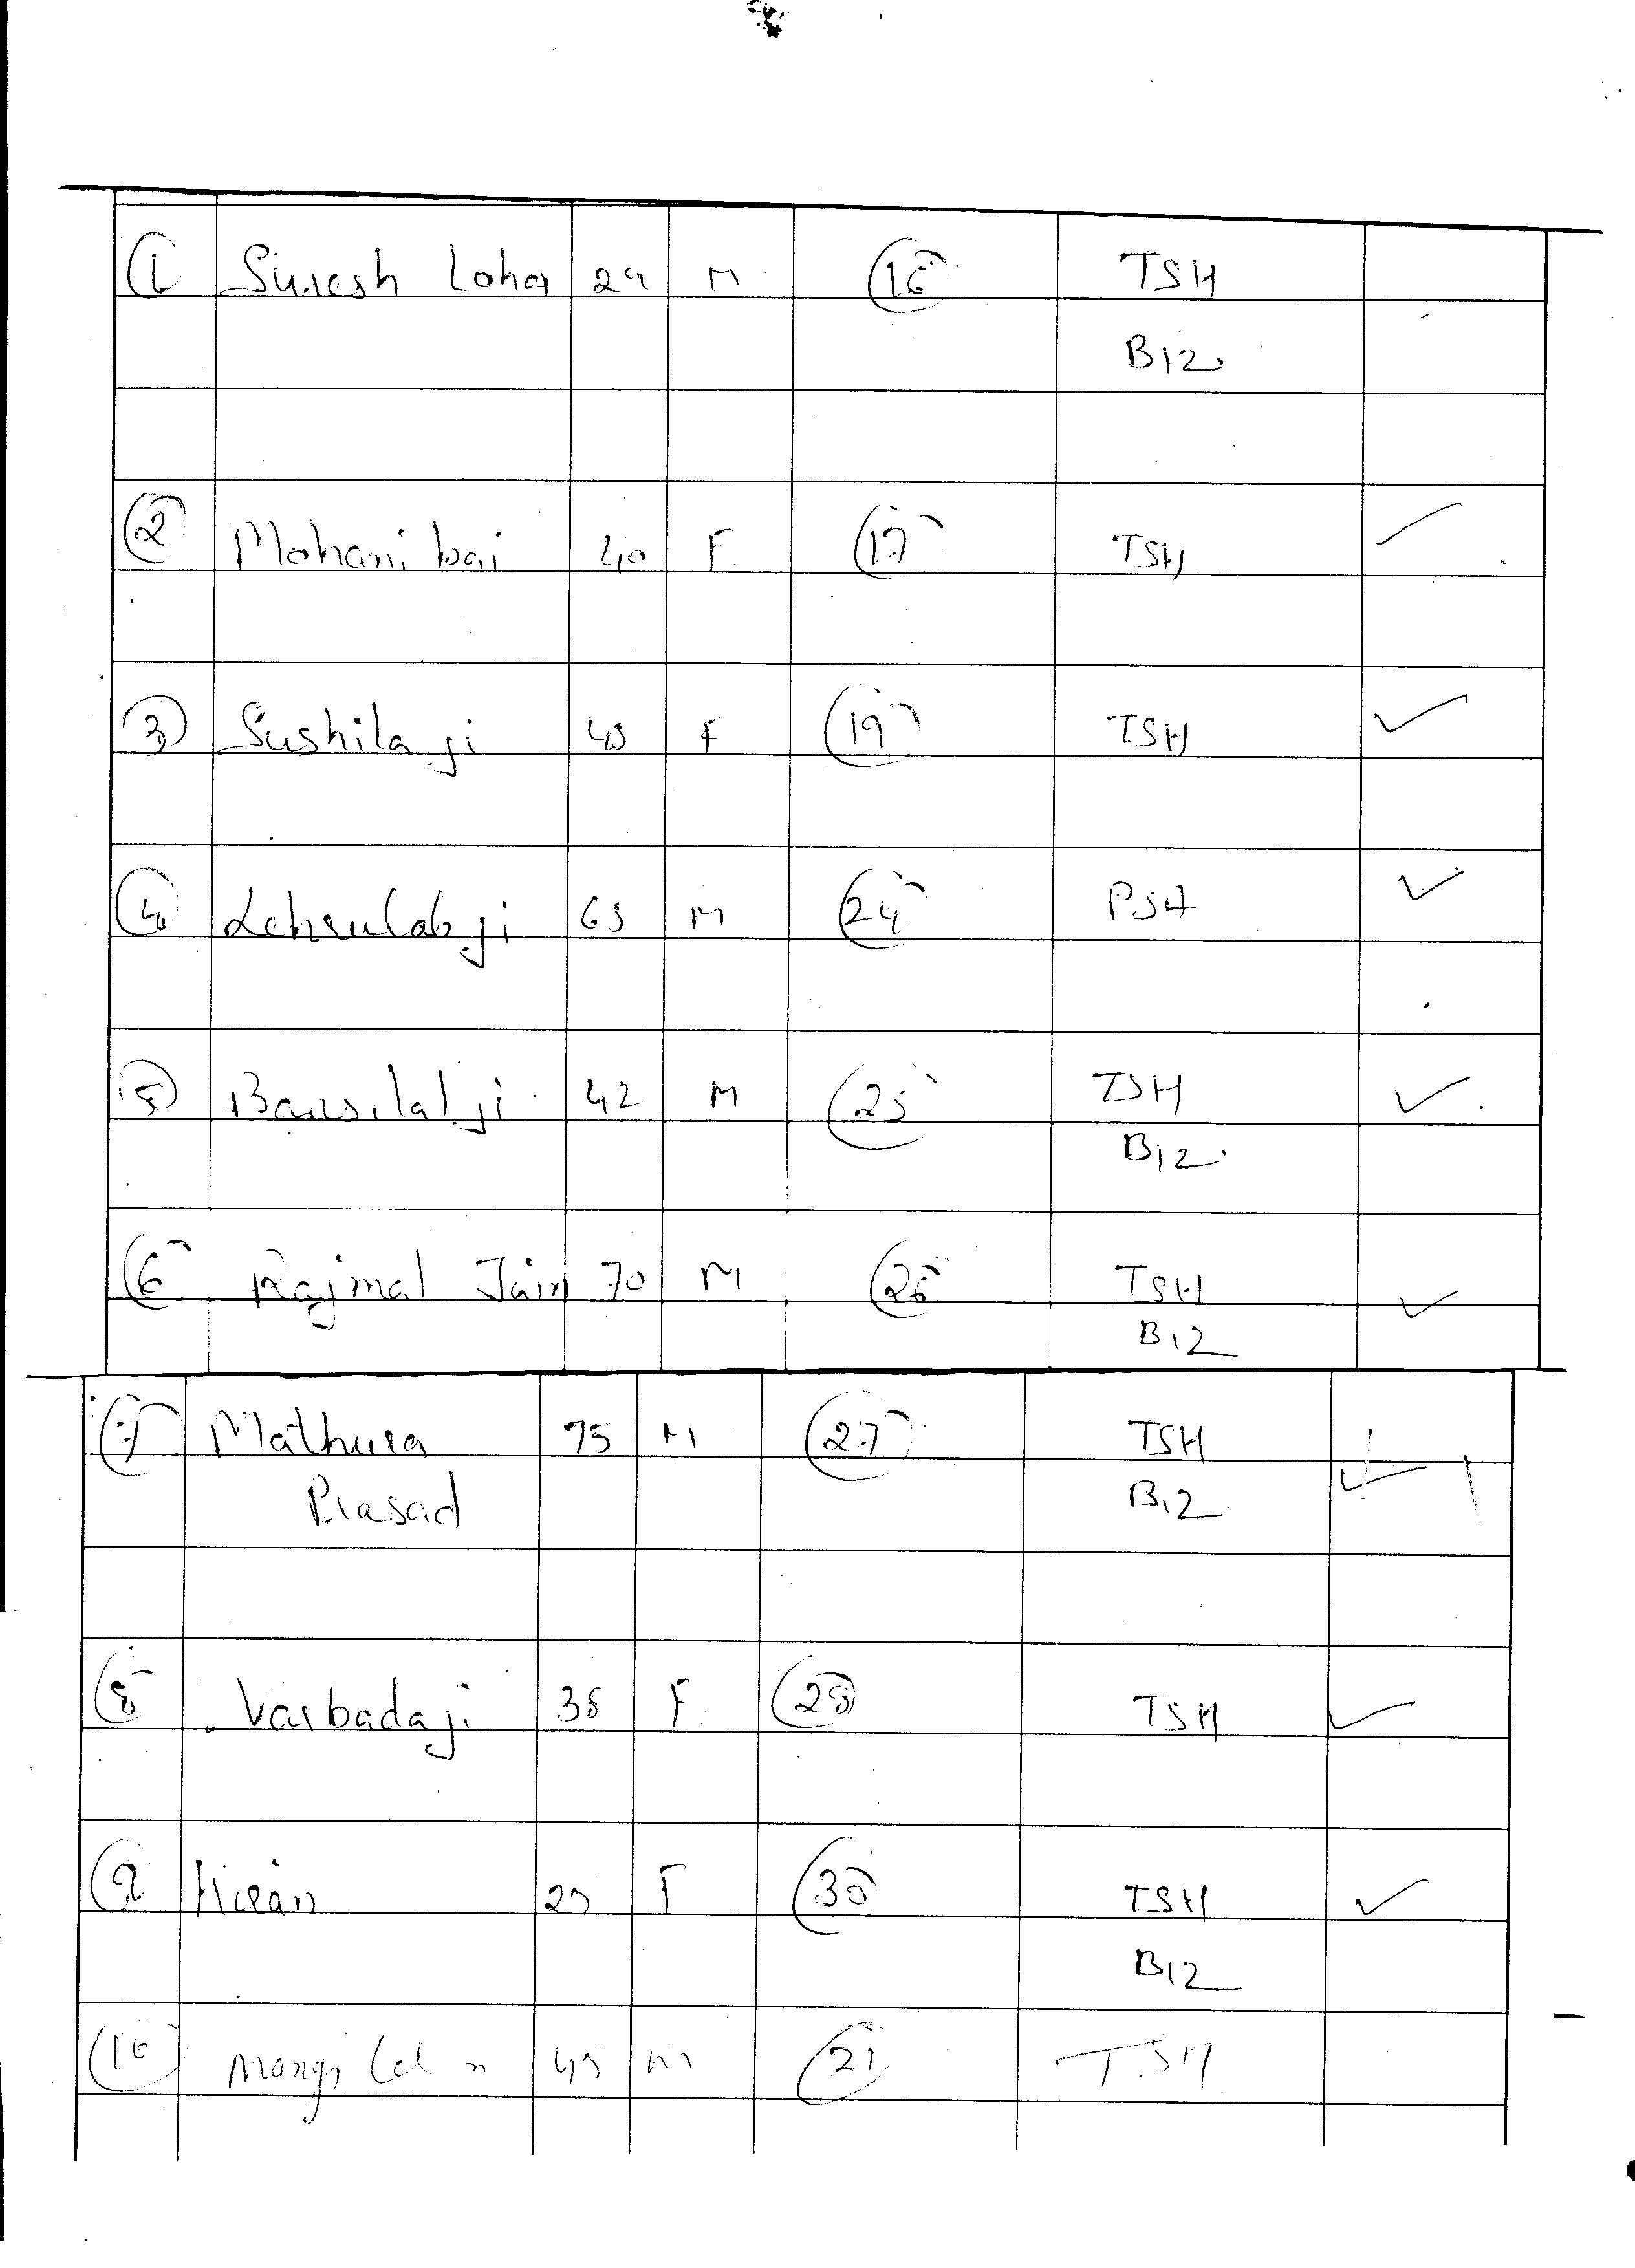 1 Suresh Lohar 24 M 16 TSH
B12
2 Mohani bai 40 F 17 TSH ✓
3 Sushila ji 45 F 19 TSH ✓
4 ji 65 M 24 PSA ✓
5 Bansilal ji 42 M 25 TSH ✓
B12
6 Rajmal Jain 70 M 26 TSH ✓
B12
7 Mathura 75 M 27 TSH
Prasad B12 ✓
8 Varbadaji 38 F 28 TSH ✓
9 Kiran 25 F 30 TSH ✓
B12
10 Mangi Lal 45 M 21 TSH